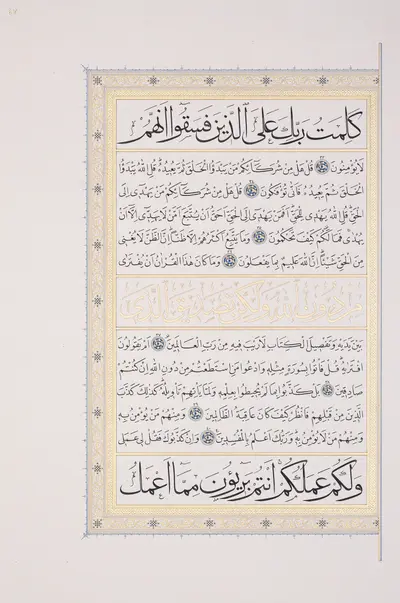 كَلِمَتُ رَبِّكَ عَلَى الَّذِينَ فَسَقُوا أَنَّهُمْ
لَا يُؤْمِنُونَ قُلْ هَلْ مِنْ شُرَكَائِكُمْ مَنْ يَبْدَؤُا الْخَلْقَ ثُمَّ يُعِيدُهُ قُلِ اللَّهُ يَبْدَؤُا
الْخَلْقَ ثُمَّ يُعِيدُهُ فَأَنَّى تُؤْفَكُونَ قُلْ هَلْ مِنْ شُرَكَائِكُمْ مَنْ يَهْدِي إِلَى
الْحَقِّ قُلِ اللَّهُ يَهْدِي لِلْحَقِّ أَفَمَنْ يَهْدِي إِلَى الْحَقِّ أَحَقُّ أَنْ يُتَّبَعَ أَمَّنْ لَا يَهِدِّي إِلَّا أَنْ
يُهْدَى فَمَا لَكُمْ كَيْفَ تَحْكُمُونَ وَمَا يَتَّبِعُ أَكْثَرُهُمْ إِلَّا ظَنًّا إِنَّ الظَّنَّ لَا يُغْنِي
مِنَ الْحَقِّ شَيْئًا إِنَّ اللَّهَ عَلِيمٌ بِمَا يَفْعَلُونَ وَمَا كَانَ هَذَا الْقُرْآنُ أَنْ يُفْتَرَى
مِنْ دُونِ اللَّهِ وَلَكِنْ تَصْدِيقَ الَّذِي
بَيْنَ يَدَيْهِ وَتَفْصِيلَ الْكِتَابِ لَا رَيْبَ فِيهِ مِنْ رَبِّ الْعَالَمِينَ أَمْ يَقُولُونَ
افْتَرَاهُ قُلْ فَأْتُوا بِسُورَةٍ مِثْلِهِ وَادْعُوا مَنِ اسْتَطَعْتُمْ مِنْ دُونِ اللَّهِ إِنْ كُنْتُمْ
صَادِقِينَ بَلْ كَذَّبُوا بِمَا لَمْ يُحِيطُوا بِعِلْمِهِ وَلَمَّا يَأْتِهِمْ تَأْوِيلُهُ كَذَلِكَ كَذَّبَ
الَّذِينَ مِنْ قَبْلِهِمْ فَانْظُرْ كَيْفَ كَانَ عَاقِبَةُ الظَّالِمِينَ وَمِنْهُمْ مَنْ يُؤْمِنُ بِهِ
وَمِنْهُمْ مَنْ لَا يُؤْمِنُ بِهِ وَرَبُّكَ أَعْلَمُ بِالْمُفْسِدِينَ وَإِنْ كَذَّبُوكَ فَقُلْ لِي عَمَلِي
وَلَكُمْ عَمَلُكُمْ أَنْتُمْ بَرِيئُونَ مِمَّا أَعْمَلُ